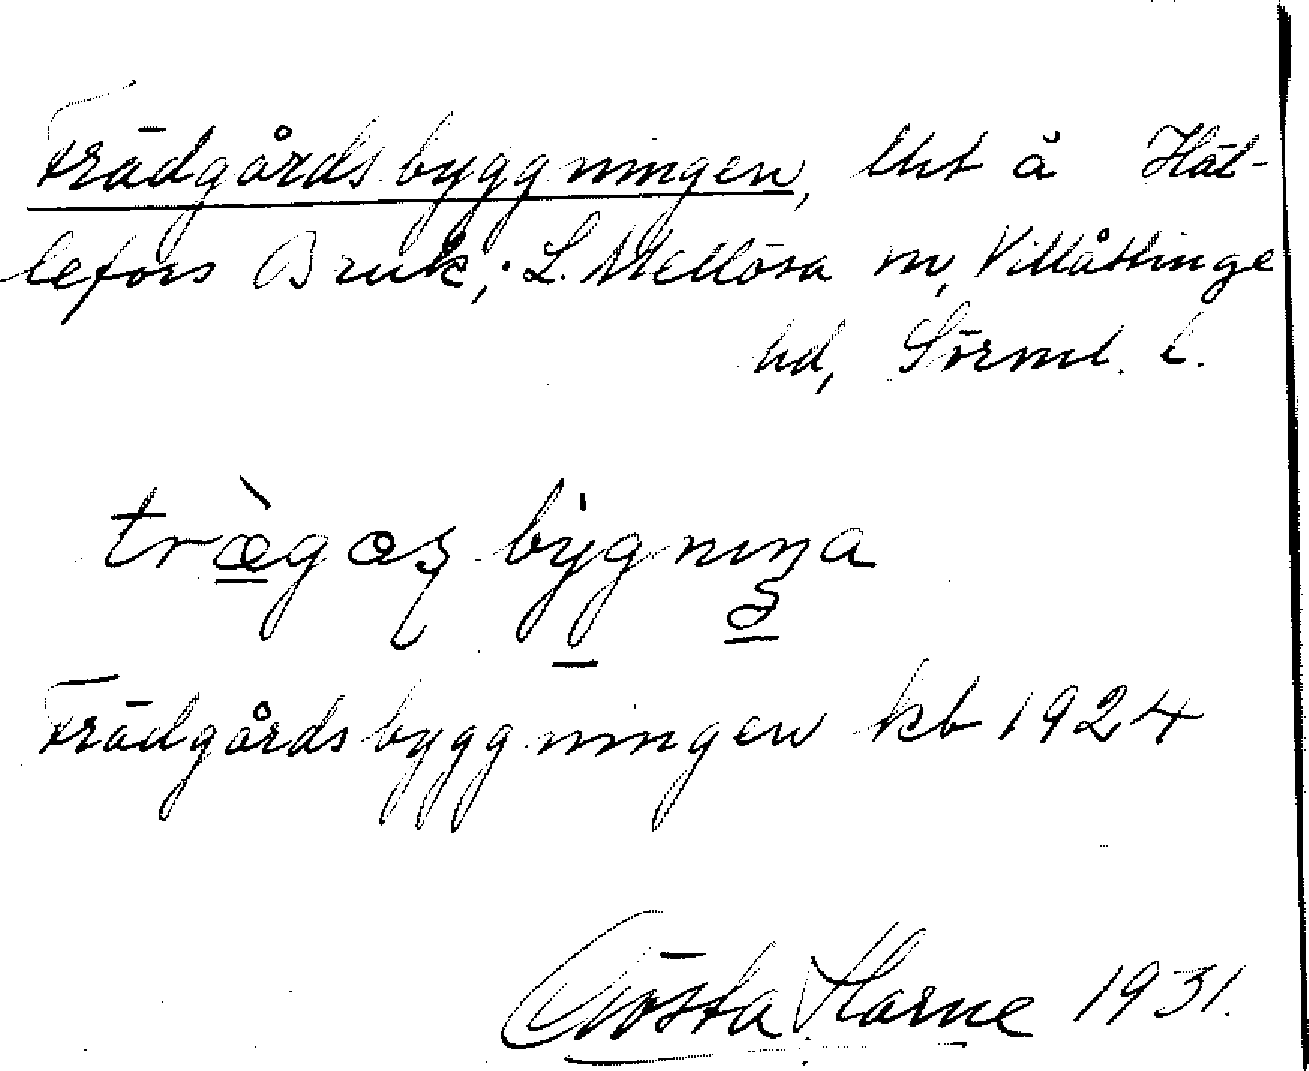 Trädgårdsbyggningen, lht å Häl-
lefors Bruk, L. Mellösa sn, Villåttinge
hd, Sörml. l.
træ̀gæṣbýgnıŋa
Trädgårdsbyggningen kb 1924
Gösta 1931.